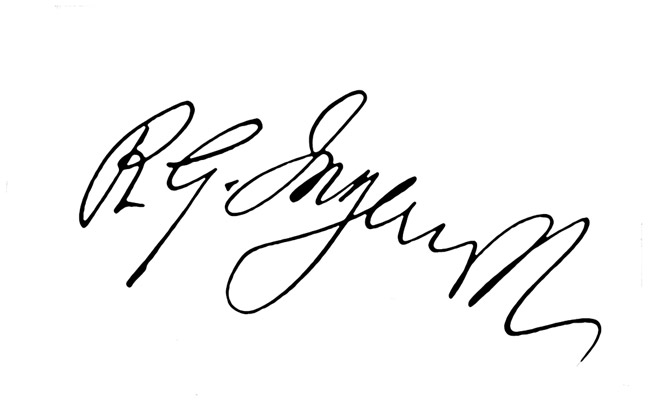 R. G. Ingersoll